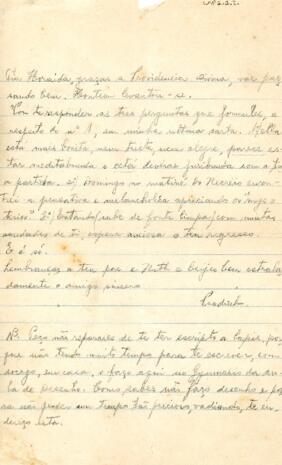 Tia Horaida, graças a Providencia divina, vae pas
sando bem. Hontem levantou-se.
Vou te responder as tres perguntas que formulei, a
respeito do nº 1, em minha ultima carta.
está mais bonita, nem triste nem alegre, parece es
tar meditabunda e está deveras
a partida. 2) Domingo na matiné do Recreio encon
trei-a pensativa e melancholica apreciando os
terios". 3) bastante/sube de fonte limpa/com muitas
saudades de ti, espera anciosa o teu regresso.
E é só.
Lembranças a teu pae e Ruth e beijos bem estrala
damente o amigo sincero
NB. Peço não reparares de te ter escripto a lapis, por
que não tendo muito tempo para te escrever, com
socego, em casa, o faço aqui no Gymnasio da au
la de desenho. Como sabes não faço desenho e pa
ra não perder um tempo tão precioso, vadiando, te en
dereço esta.